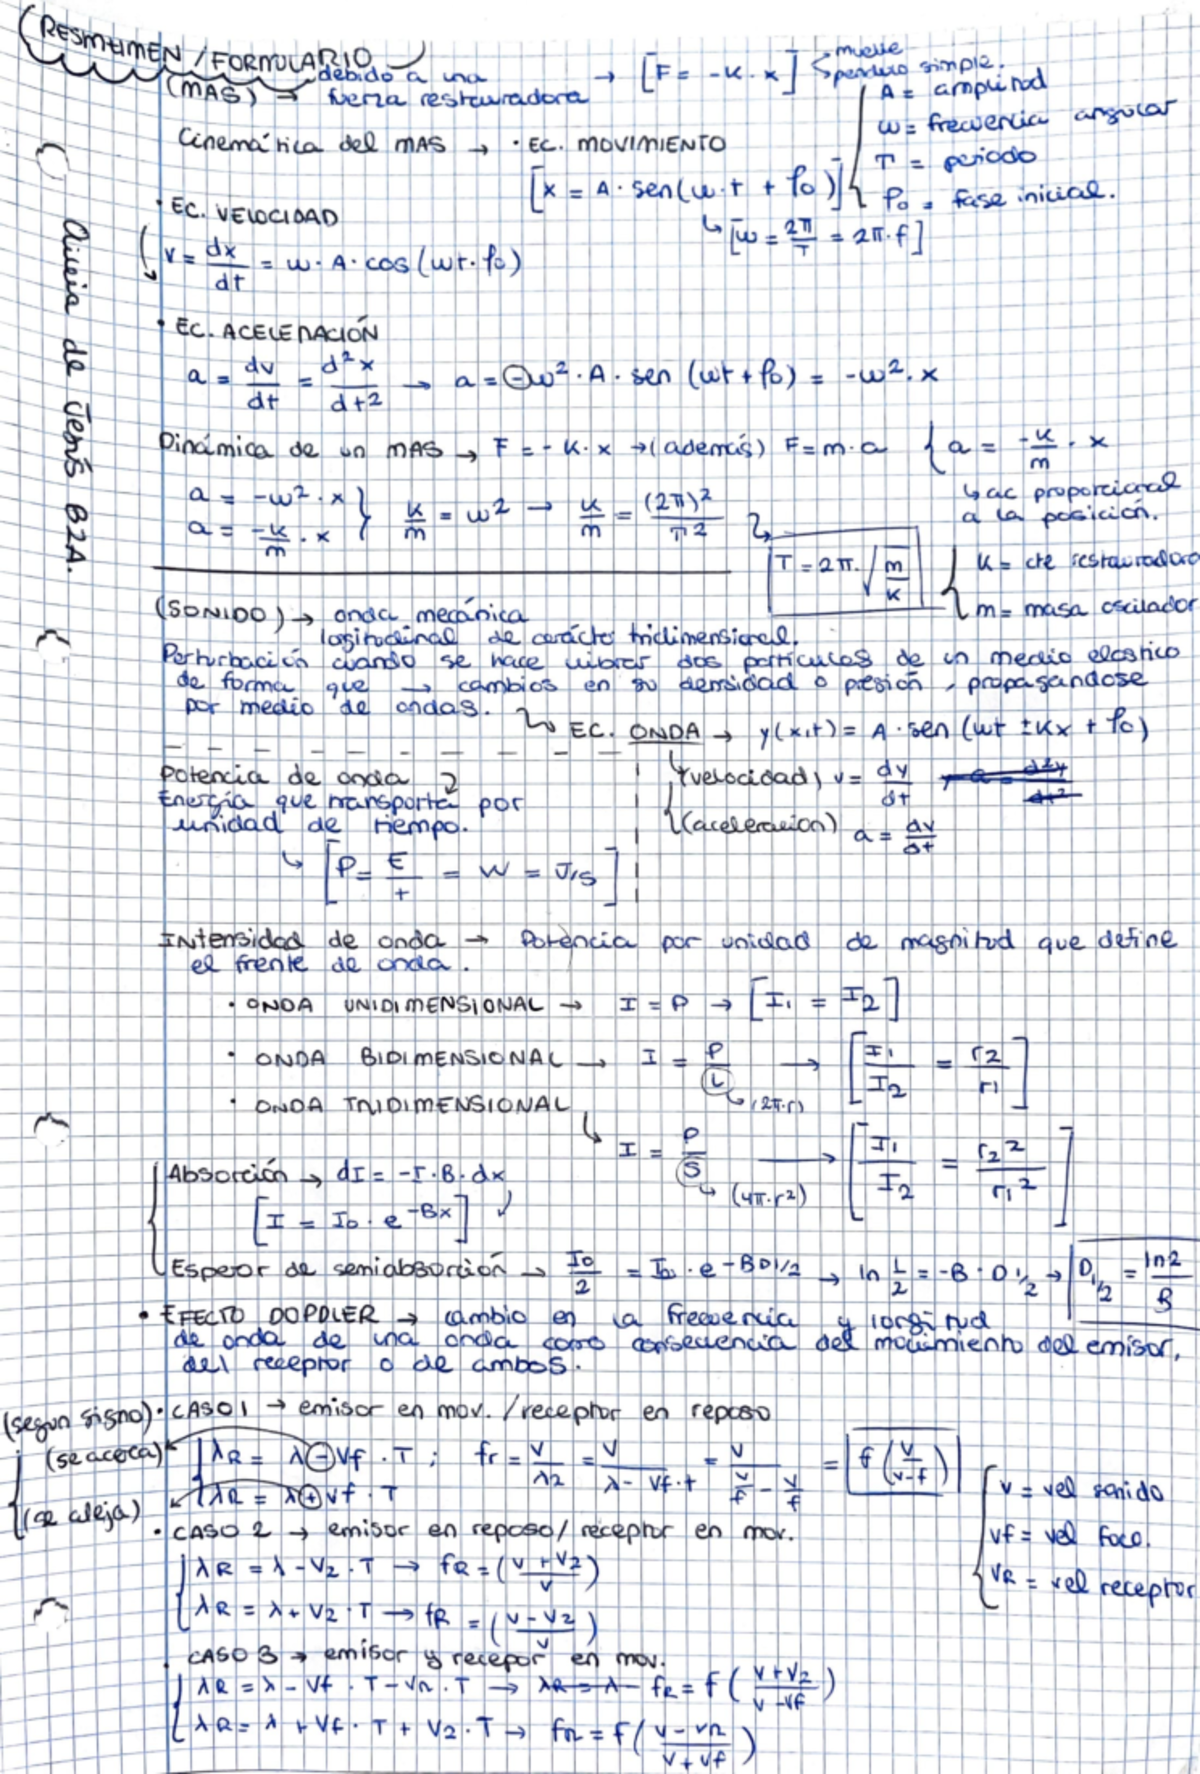 RESMUMEN / FORMULARIO
(MAS) → debido a una fuerza restauradora → [F = -K · x] muelle péndulo simple.
Cinemática del MAS → · EC. MOVIMIENTO
[x = A · sen(w·t + φo)]
A = amplitud
w = frecuencia angular
T = periodo
φo = fase inicial.
↳ [w = 2π/T = 2π·f]
· EC. VELOCIDAD
v = dx/dt = w · A · cos(wt·φo)
· EC. ACELERACIÓN
a = dv/dt = d²x/dt2 → a = -w² · A · sen (wt + φo) = -w² · x
Dinámica de un MAS → F = -K·x → (además) F = m·a { a = -K/m · x
↳ ac proporcional a la posición.
a = -w² · x
a = -K/m · x } K/m = w² → K/m = (2π)²/T2
T = 2π · √m/K
K = cte restauradora
m = masa oscilador
Alicia de Jesús B2A.
(SONIDO) → onda mecánica
logitudinal de carácter tridimensional.
Perturbación cuando se hace vibrar dos partículas de un medio elástico
de forma que → cambios en su densidad o presión, propagándose
por medio de ondas.
EC. ONDA → y(x,t) = A · sen (wt ± Kx + φo)
(velocidad) v = dy/dt
(aceleracion) a = dv/dt
Potencia de onda
Energía que transporta por
unidad de tiempo.
↳ [P = E/t = W = J/s]
Intensidad de onda → Potencia por unidad de magnitud que define
el frente de onda.
· ONDA UNIDIMENSIONAL → I = P → [I1 = I2]
· ONDA BIDIMENSIONAL → I = P/L → [I1/I2 = r2/r1]
↳ (2π·r)
· ONDA TRIDIMENSIONAL
↳ I = P/S → [I1/I2 = r2²/r1²]
↳ (4π·r²)
Absorción → dI = -I · B · dx
[I = Io · e^-Bx]
Espesor de semiabsorción → Io/2 = Io · e^-BD1/2 → ln 1/2 = -B · D1/2 → D1/2 = ln2/B
· EFECTO DOPPLER → cambio en la frecuencia y longitud
de onda de una onda como consecuencia del movimiento del emisor,
del receptor o de ambos.
(segun signo) · CASO 1 → emisor en mov. / receptor en reposo
(se acerca) λR = λ - Vf · T ; fr = V/λ2 = V/λ - Vf·t = V/V/f - V/f = f (V/v-f)
(se aleja) λR = λ + Vf · T
v = vel sonido
vf = vel foco.
VR = vel receptor
· CASO 2 → emisor en reposo / receptor en mov.
λR = λ - V2 · T → fR = (V + V2/V)
λR = λ + V2 · T → fR = (V - V2/V)
· CASO 3 → emisor y recepor en mov.
λR = λ - Vf · T - VR · T → λR = λ - fR = f (V + V2/V - Vf)
λR = λ + Vf · T + V2 · T → fR = f (V - VR/V + Vf)